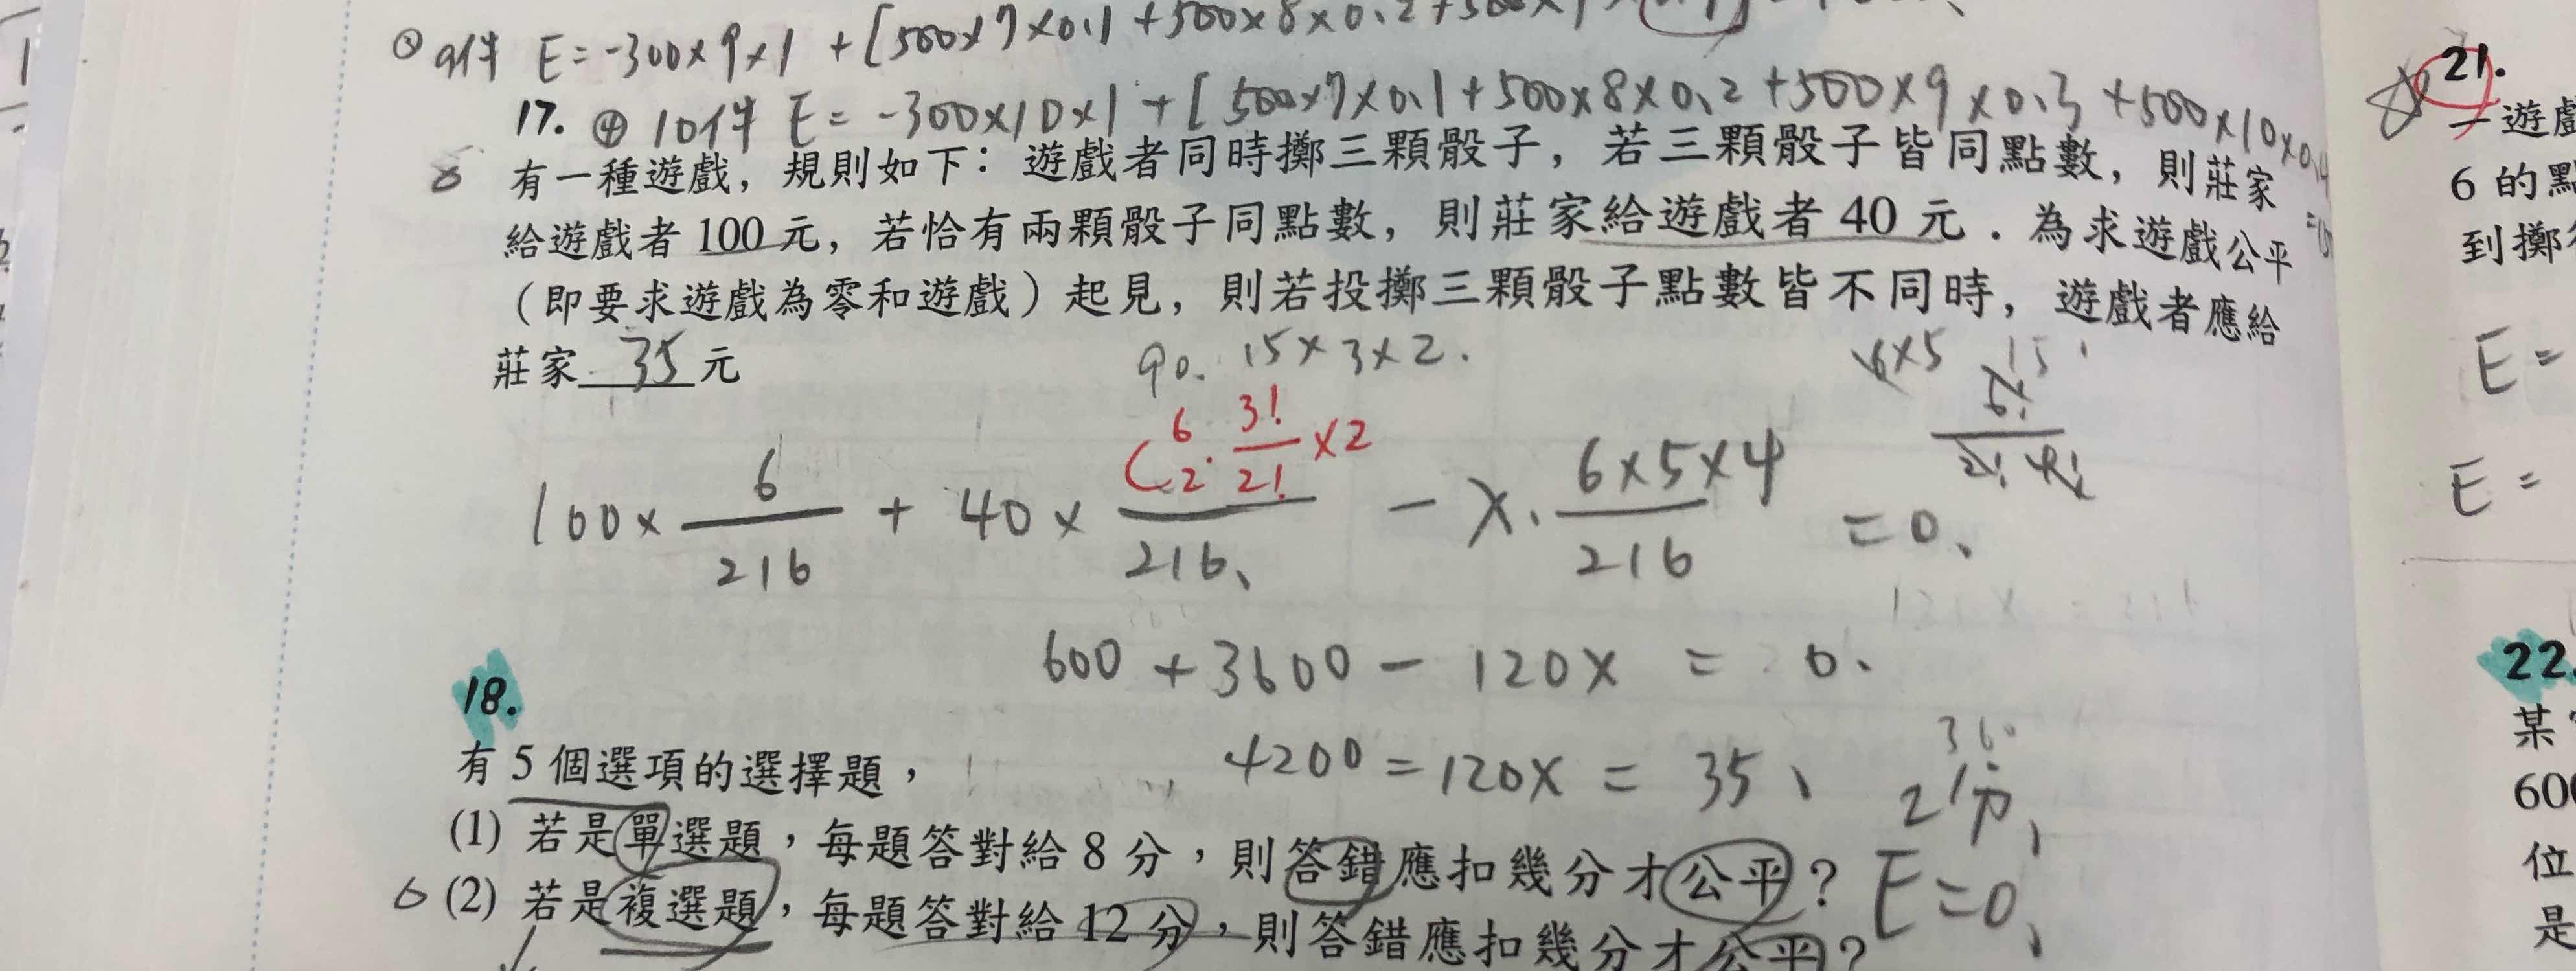 ③ 9件 E=-300×9×1+[500×7×0.1+500×8×0.2+500×9×
17. ④ 10件 E=-300×10×1+[500×7×0.1+500×8×0.2+500×9×0.3+500×10×0.4
有一種遊戲，規則如下：遊戲者同時擲三顆骰子，若三顆骰子皆同點數，則莊家
給遊戲者 100 元，若恰有兩顆骰子同點數，則莊家給遊戲者 40 元．為求遊戲公平
（即要求遊戲為零和遊戲）起見，則若投擲三顆骰子點數皆不同時，遊戲者應給
莊家 35 元
90. 15×3×2.
6×5 15
6!
2! 4!
C 6 2 · 3!/2! ×2
100× 6/216 + 40× /216 - x· 6×5×4/216 =0
600+3600-120x=0.
4200=120x=35
18.
有 5 個選項的選擇題，
(1) 若是單選題，每題答對給 8 分，則答錯應扣幾分才公平？
2分
6 (2) 若是複選題，每題答對給 12 分，則答錯應扣幾分才公平？
E=0
21.
一遊戲
6 的點
到擲
E=
E=
22.
某
600
位
是